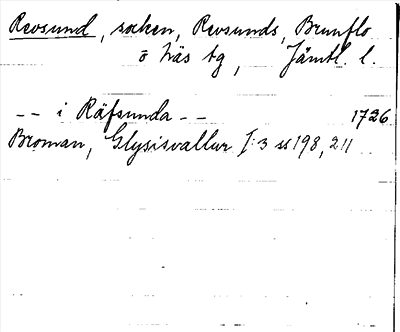 Revsund, socken, Revsunds, Brunflo
o Näs tg, Jämtl. l.
-- i Räfsunda -- 1726
Broman, Glysisvallur I:3 ss 198, 211